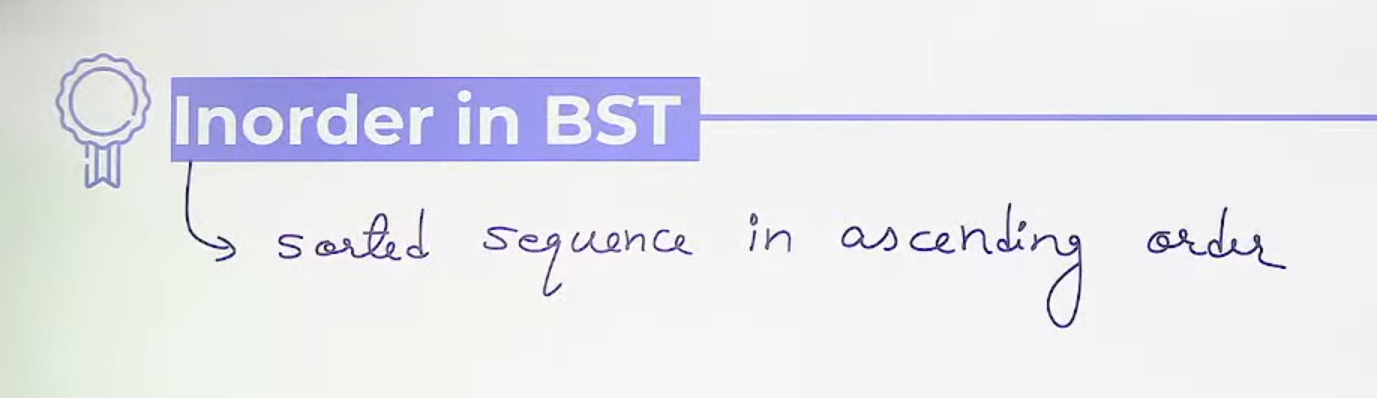 Inorder in BST
sorted sequence in ascending order